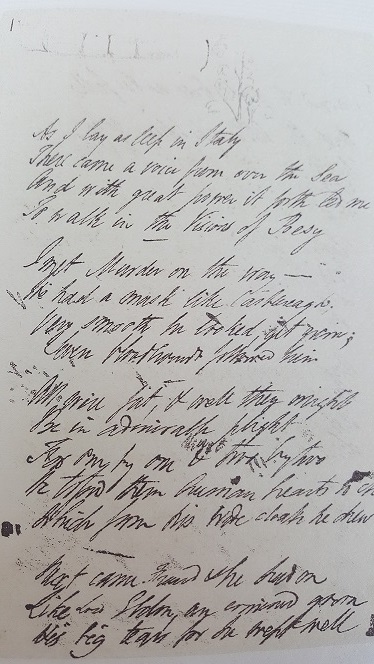 As I lay asleep in Italy
There came a voice from over the Sea
And with great power it forth led me
To walk in the Visions of Poesy
I met Murder on the way —
He had a mask like Castlereagh.
Very smooth he looked yet grim;
Seven bloodhounds followed him
All were fat, & well they might
Be in admirable plight
For one by one & two by two
He tossed them human hearts to
Which from his wide cloak he drew
Next came Fraud & he had on
Like Lord Eldon, an ermined gown
His big tears for he wept well